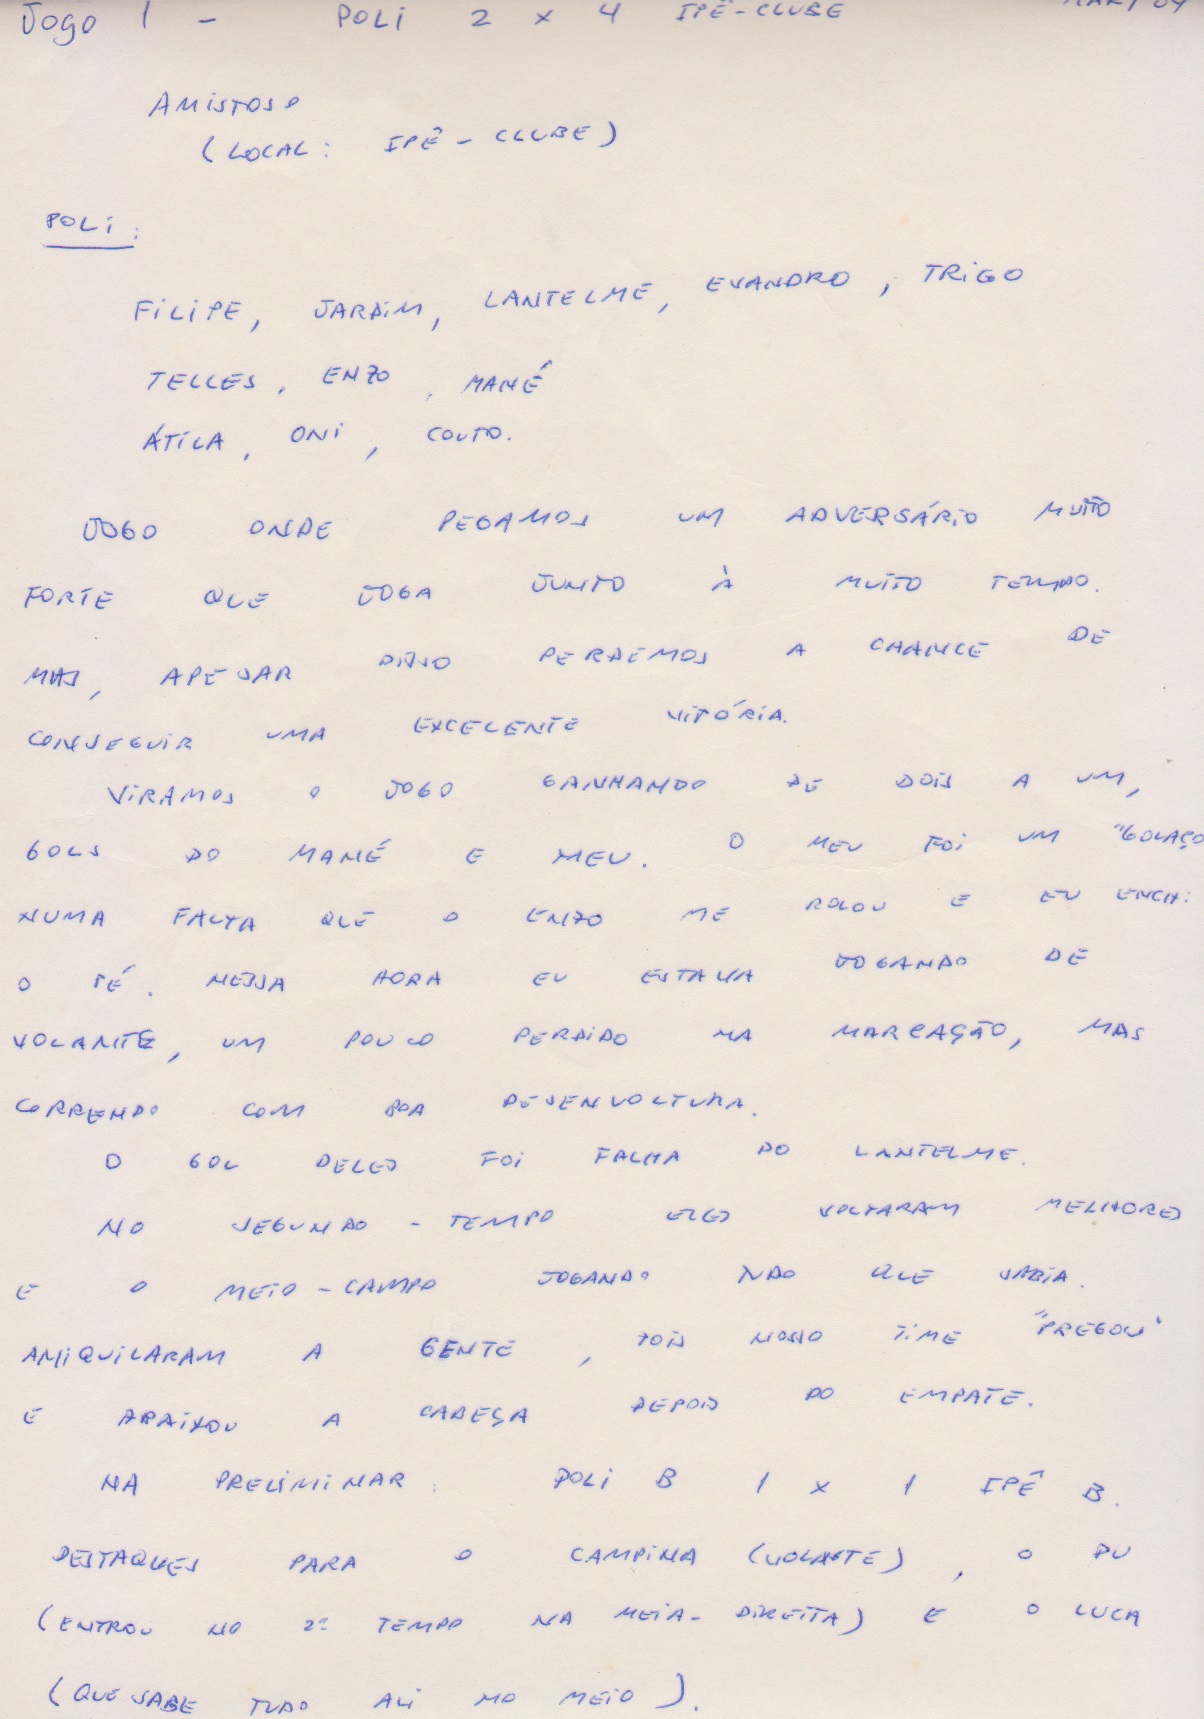 Jogo 1 - POLI 2 x 4 IPÊ-CLUBE
AMISTOSO
(LOCAL: IPÊ-CLUBE)
POLI:
FILIPE, JARDIM, LANTELME, EVANDRO, TRIGO
TELLES, ENZO, MANÉ
ÁTILA, ONI, COUTO.
JOGO ONDE PEGAMOS UM ADVERSÁRIO MUITO
FORTE QUE JOGA JUNTO À MUITO TEMPO.
MAS, APESAR DISSO PERDEMOS A CHANCE DE
CONSEGUIR UMA EXCELENTE VITÓRIA.
VIRAMOS O JOGO GANHANDO DE DOIS A UM,
GOLS DO MANÉ E MEU. O MEU FOI UM "GOLAÇO
NUMA FALTA QUE O ENZO ME ROLOU E EU ENCHI
O PÉ. NESSA HORA EU ESTAVA JOGANDO DE
VOLANTE, UM POUCO PERDIDO NA MARCAÇÃO, MAS
CORRENDO COM BOA DESENVOLTURA.
O GOL DELES FOI FALHA DO LANTELME.
NO SEGUNDO-TEMPO ELES VOLTARAM MELHORES
E O MEIO-CAMPO JOGANDO TUDO QUE SABIA.
ANIQUILARAM A GENTE, POIS NOSSO TIME "PREGOU"
E ABAIXOU A CABEÇA DEPOIS DO EMPATE.
NA PRELIMINAR: POLI B 1 x 1 IPÊ B.
DESTAQUES PARA O CAMPINA (VOLANTE), O DU
(ENTROU NO 2º TEMPO NA MEIA-DIREITA) E O LUCA
(QUE SABE TUDO ALI NO MEIO).